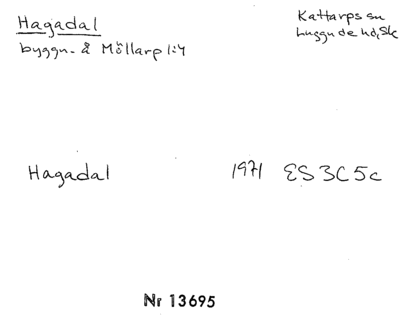 Hagadal
byggn. å Möllarp 1:4
Kattarps sn
Luggude hd, Sk
Hagadal 1971 ES 3C5c
Nr 13695